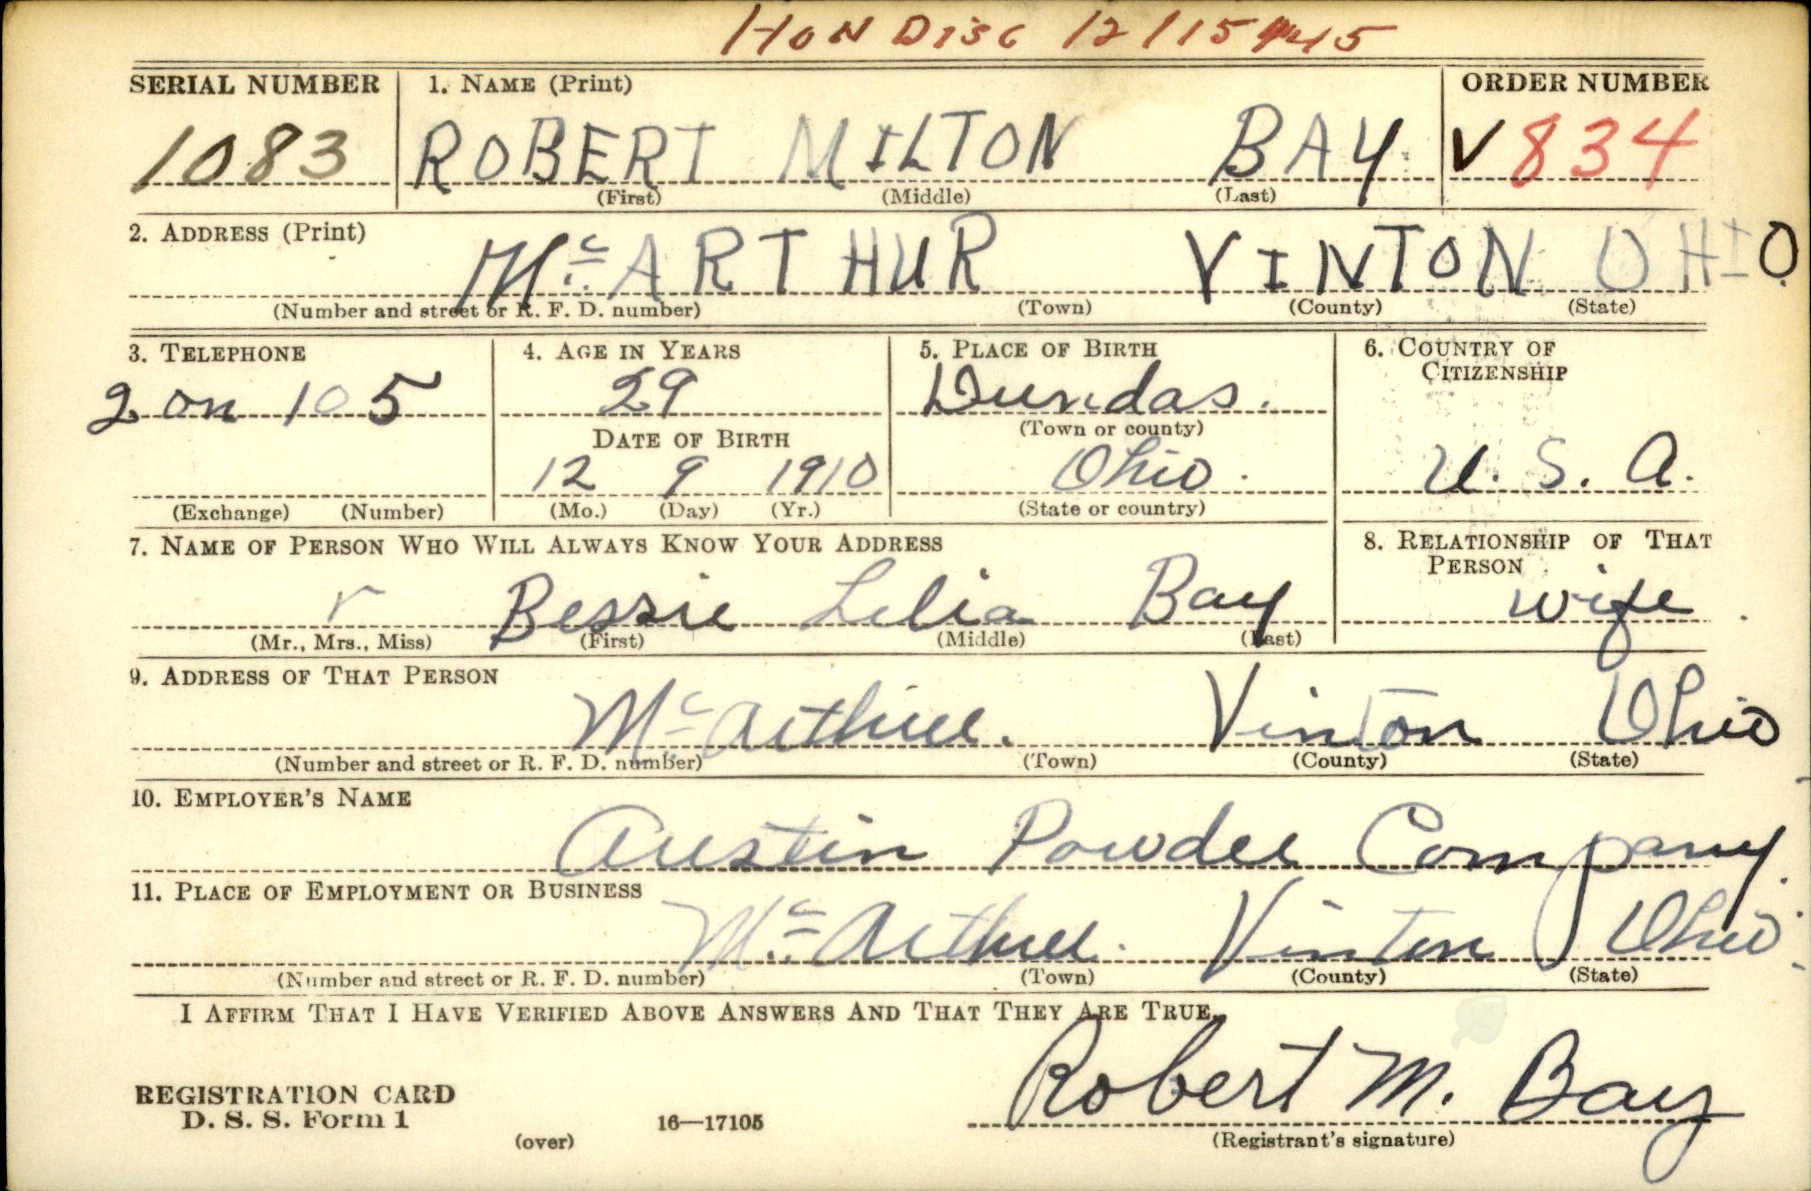 HON DISC 12/15/45
SERIAL NUMBER 1. NAME (Print) ORDER NUMBER
1083 ROBERT MILTON BAY V834
(First) (Middle) (Last)
2. ADDRESS (Print)
McARTHUR VINTON OHIO
(Number and street or R. F. D. number) (Town) (County) (State)
3. TELEPHONE 4. AGE IN YEARS 5. PLACE OF BIRTH 6. COUNTRY OF CITIZENSHIP
2 on 105 29 Dundas.
DATE OF BIRTH (Town or county)
12 9 1910 Ohio. U. S. A.
(Exchange) (Number) (Mo.) (Day) (Yr.) (State or country)
7. NAME OF PERSON WHO WILL ALWAYS KNOW YOUR ADDRESS 8. RELATIONSHIP OF THAT PERSON
Bessie Lelia Bay wife
(Mr., Mrs., Miss) (First) (Middle) (Last)
9. ADDRESS OF THAT PERSON
McArthur. Vinton Ohio
(Number and street or R. F. D. number) (Town) (County) (State)
10. EMPLOYER'S NAME
Austin Powder Company.
11. PLACE OF EMPLOYMENT OR BUSINESS
McArthur. Vinton Ohio
(Number and street or R. F. D. number) (Town) (County) (State)
I AFFIRM THAT I HAVE VERIFIED ABOVE ANSWERS AND THAT THEY ARE TRUE.
Robert M. Bay
REGISTRATION CARD
D. S. S. Form 1 16—17105
(over) (Registrant's signature)